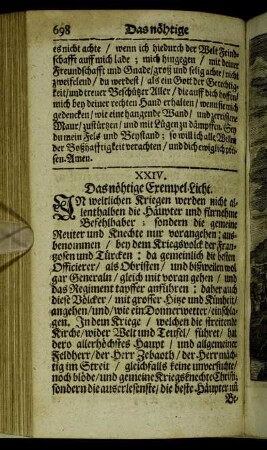 698 Das nöhtige
es nicht achte / wenn ich hiedurch der Welt Feind-
schafft auff mich lade ; mich hingegen / mit deiner
Freundschafft und Gnade / groß und selig achte / nicht
zweiflend / du werdest / als ein Gott der Gerechtig-
keit / und treuer Beschützer Aller / die auff dich hoffen /
mich bey deiner rechten Hand erhalten / wenn sie mich
gedencken / wie eine hangende Wand / und zerrissene
Maur / zu stürtzen / und mit Lügen zu dämpffen. Sey
du mein Fels und Beystand ; so will ich alle Pfeile
der Boßhafftigkeit verachten / und dich ewiglich prei-
sen. Amen.
XXIV.
Das nöhtige Exempel-Licht.
IN weltlichen Kriegen werden nicht al-
lenthalben die Häupter und fürnehme
Befehlhaber / sondern die gemeine
Reuter und Knechte nur vorangehen : aus-
benommen / bey dem Kriegsvolck der Fran-
tzosen und Türcken : da gemeinlich die besten
Officierer / als Obristen / und bisweilen wol
gar Generaln / gleich mit voran gehen / und
das Regiment tapffer anführen : daher auch
diese Völcker / mit grosser Hitze und Künheit /
angehen / und / wie ein Donnerwetter / einschla-
gen. In dem Kriege / welchen die streitende
Kirche / wider Welt und Teufel / führet / hat
dero allerhöchstes Haupt / und allgemeiner
Feldherr / der Herr Zebaoth / der Herr mäch-
tig im Streit / gleichfalls keine unversuchte /
noch blöde / und gemeine Kriegsknechte Christi /
sondern die auserlesenste / die beste Häupter und
Be-